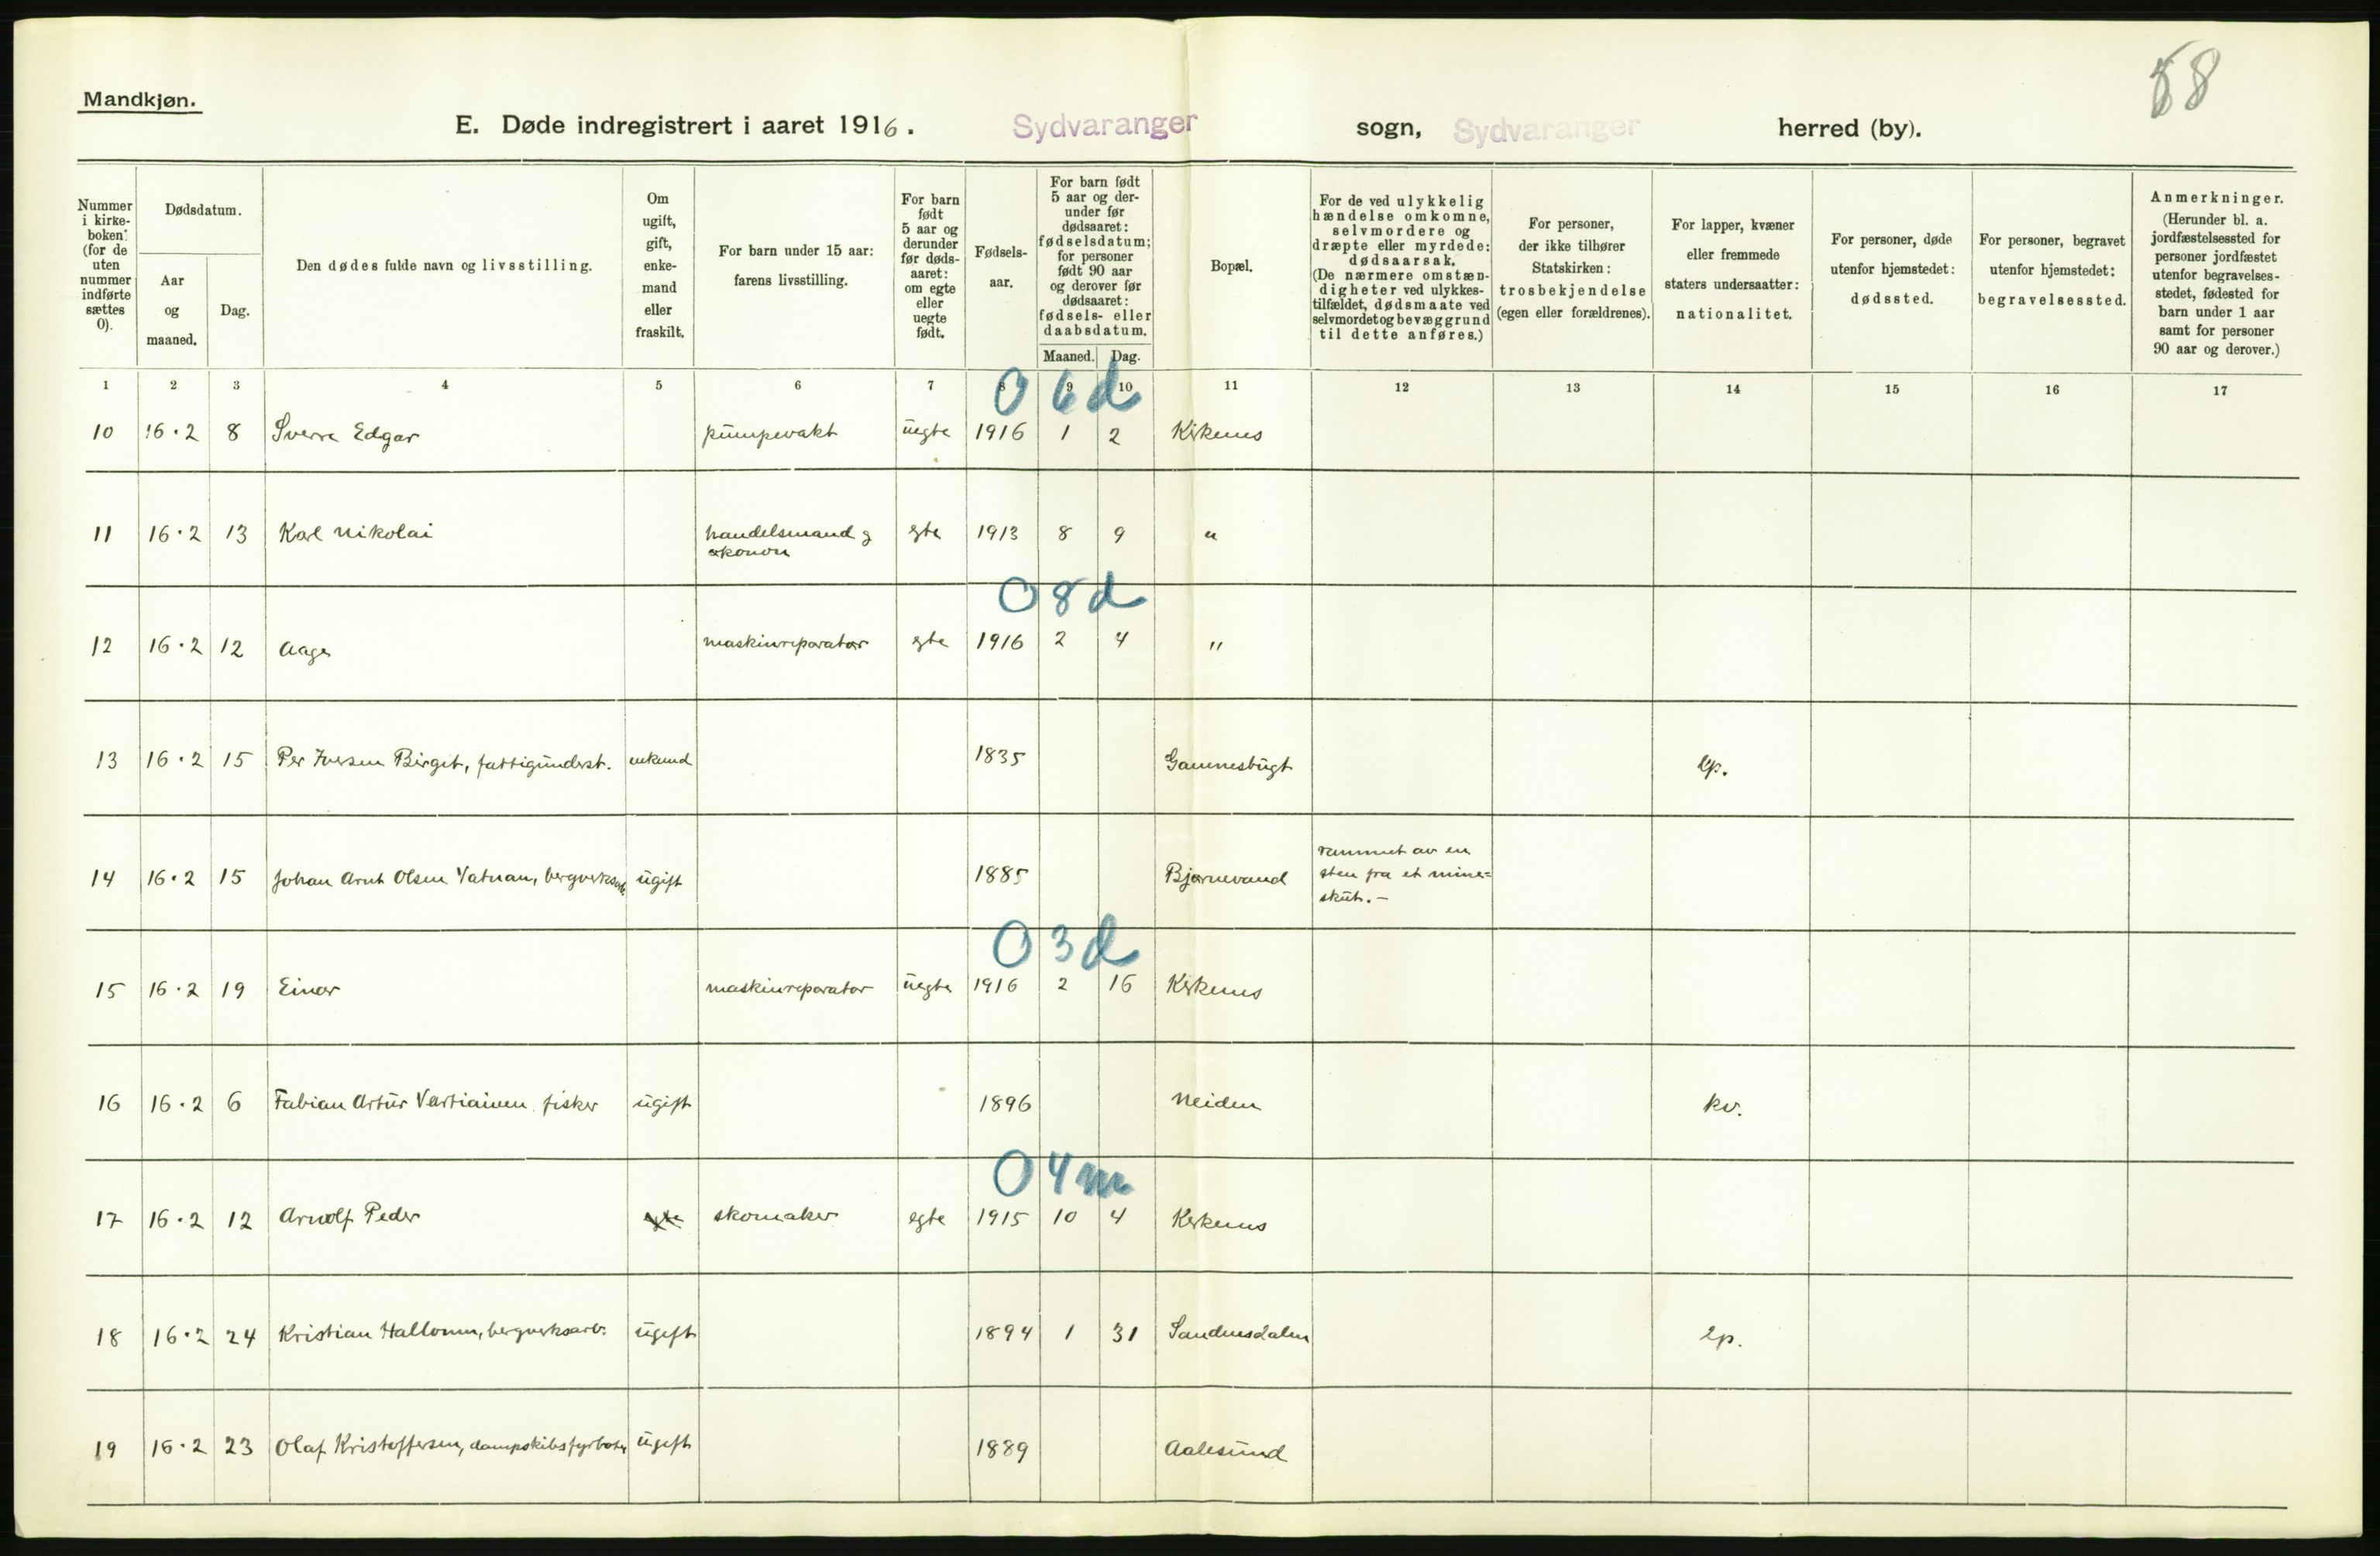 Mandkjøn.
88
E. Døde indregistrert i aaret 1916. Sydvaranger sogn, Sydvaranger herred (by).
Nummer i kirke-boken: (for de uten nummer indførte sættes 0).
Dødsdatum.
Aar og maaned.
Dag.
Den dødes fulde navn og livsstilling.
Om ugift, gift, enke-mand eller fraskilt.
For barn under 15 aar: farens livsstilling.
For barn født 5 aar og derunder før døds-aaret: om egte eller uegte født.
Fødsels-aar.
For barn født 5 aar og der-under før dødsaaret: fødselsdatum; for personer født 90 aar og derover før dødsaaret: fødsels- eller daabsdatum.
Maaned. Dag.
Bopæl.
For de ved ulykkelig hændelse omkomne, selvmordere og dræpte eller myrdede: dødsaarsak. (De nærmere omstæn-digheter ved ulykkes-tilfældet, dødsmaate ved selvmordet og bevæggrund til dette anføres.)
For personer, der ikke tilhører Statskirken: trosbekjendelse (egen eller forældrenes).
For lapper, kvæner eller fremmede staters undersaatter: nationalitet.
For personer, døde utenfor hjemstedet: dødssted.
For personer, begravet utenfor hjemstedet: begravelsessted.
Anmerkninger. (Herunder bl. a. jordfæstelsessted for personer jordfæstet utenfor begravelses-stedet, fødested for barn under 1 aar samt for personer 90 aar og derover.)
1 2 3 4 5 6 7 8 9 10 11 12 13 14 15 16 17
0 6 d
10 16·2 8 Sverre Edgar pumpevakt uegte 1916 1 2 Kirkenes
11 16·2 13 Karl Nikolai handelsmand g egte 1913 8 9 "
økonom
0 8 d
12 16·2 12 Aage maskinreparatør egte 1916 2 4 "
13 16·2 15 Per Iversen Birget, fattigunderst. enkemd 1835 Gamnesbugt lp.
14 16·2 15 Johan Arnt Olsen Vatnan, bergverksarb. ugift 1885 Bjørnevand rammet av en
sten fra et mine-
skut. -
0 3 d
15 16·2 19 Einar maskinreparatør uegte 1916 2 16 Kirkenes
16 16·2 6 Fabian Artur Vartiainen fisker ugift 1896 Neiden kv.
0 4 m
17 16·2 12 Arnolf Peder egte skomaker egte 1915 10 4 Kirkenes
18 16·2 24 Kristian Hallonen, bergverksarb. ugift 1894 1 31 Sandnesdalen lp.
19 16·2 23 Olaf Kristoffersen, dampskibsfyrbøter ugift 1889 Aalesund